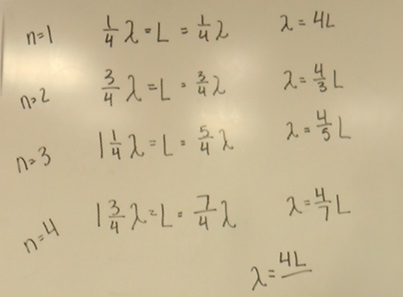 n=1 1/4 λ = L = 1/4 λ λ = 4L
n=2 3/4 λ = L = 3/4 λ λ = 4/3 L
n=3 1 1/4 λ = L = 5/4 λ λ = 4/5 L
n=4 1 3/4 λ = L = 7/4 λ λ = 4/7 L
λ = 4L/